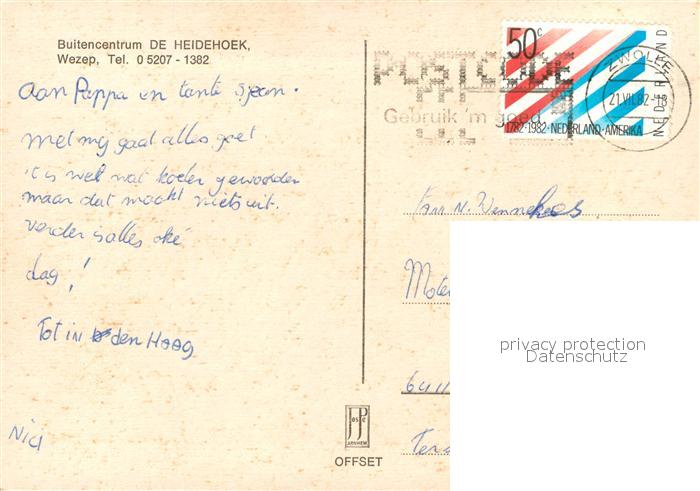 Buitencentrum DE HEIDEHOEK,
Wezep, Tel. 0 5207 - 1382
aan Pappa en tante Sjean.
met mij gaat alles goet
it is wel wat koeler geworden
maar dat maakt niets uit.
verder is alles oké
dag!
Tot in den Haag
POSTCODE
Gebruik 'm goed
50c
1782·1982·NEDERLAND-AMERIKA
NEDERLAND
ZWOLLE
21.VII.82-18
Fam N. Wennekes
6411
privacy protection
Datenschutz
JP
ARNHEM
OFFSET